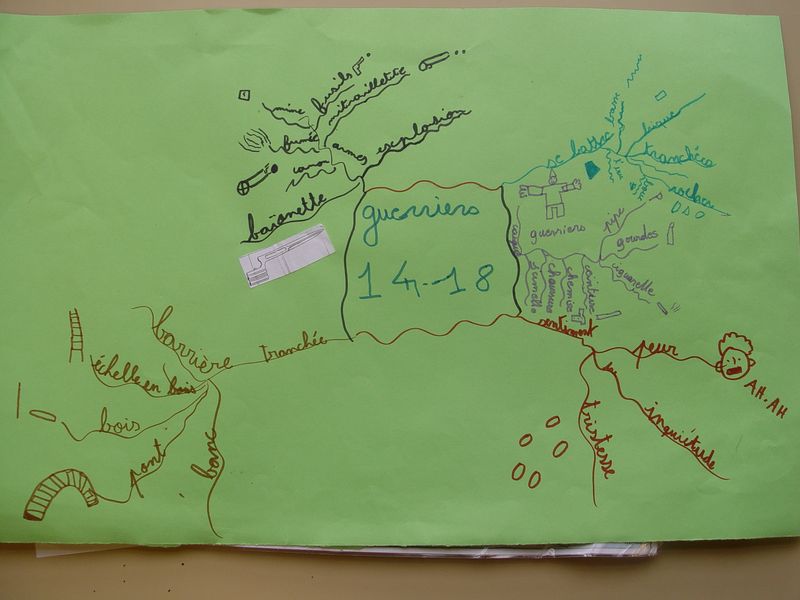 guerriers
14-18
armes
mine
fusils
mitraillette
fumée
canon
explosion
baïonnette
se battre
tranchées
rochers
guerriers
pipe
gourdes
cigarette
casque
chaussures
chemise
ceinture
sentiment
peur
AH-AH
inquiétude
tristesse
tranchée
barrière
échelle en bois
bois
pont
banc